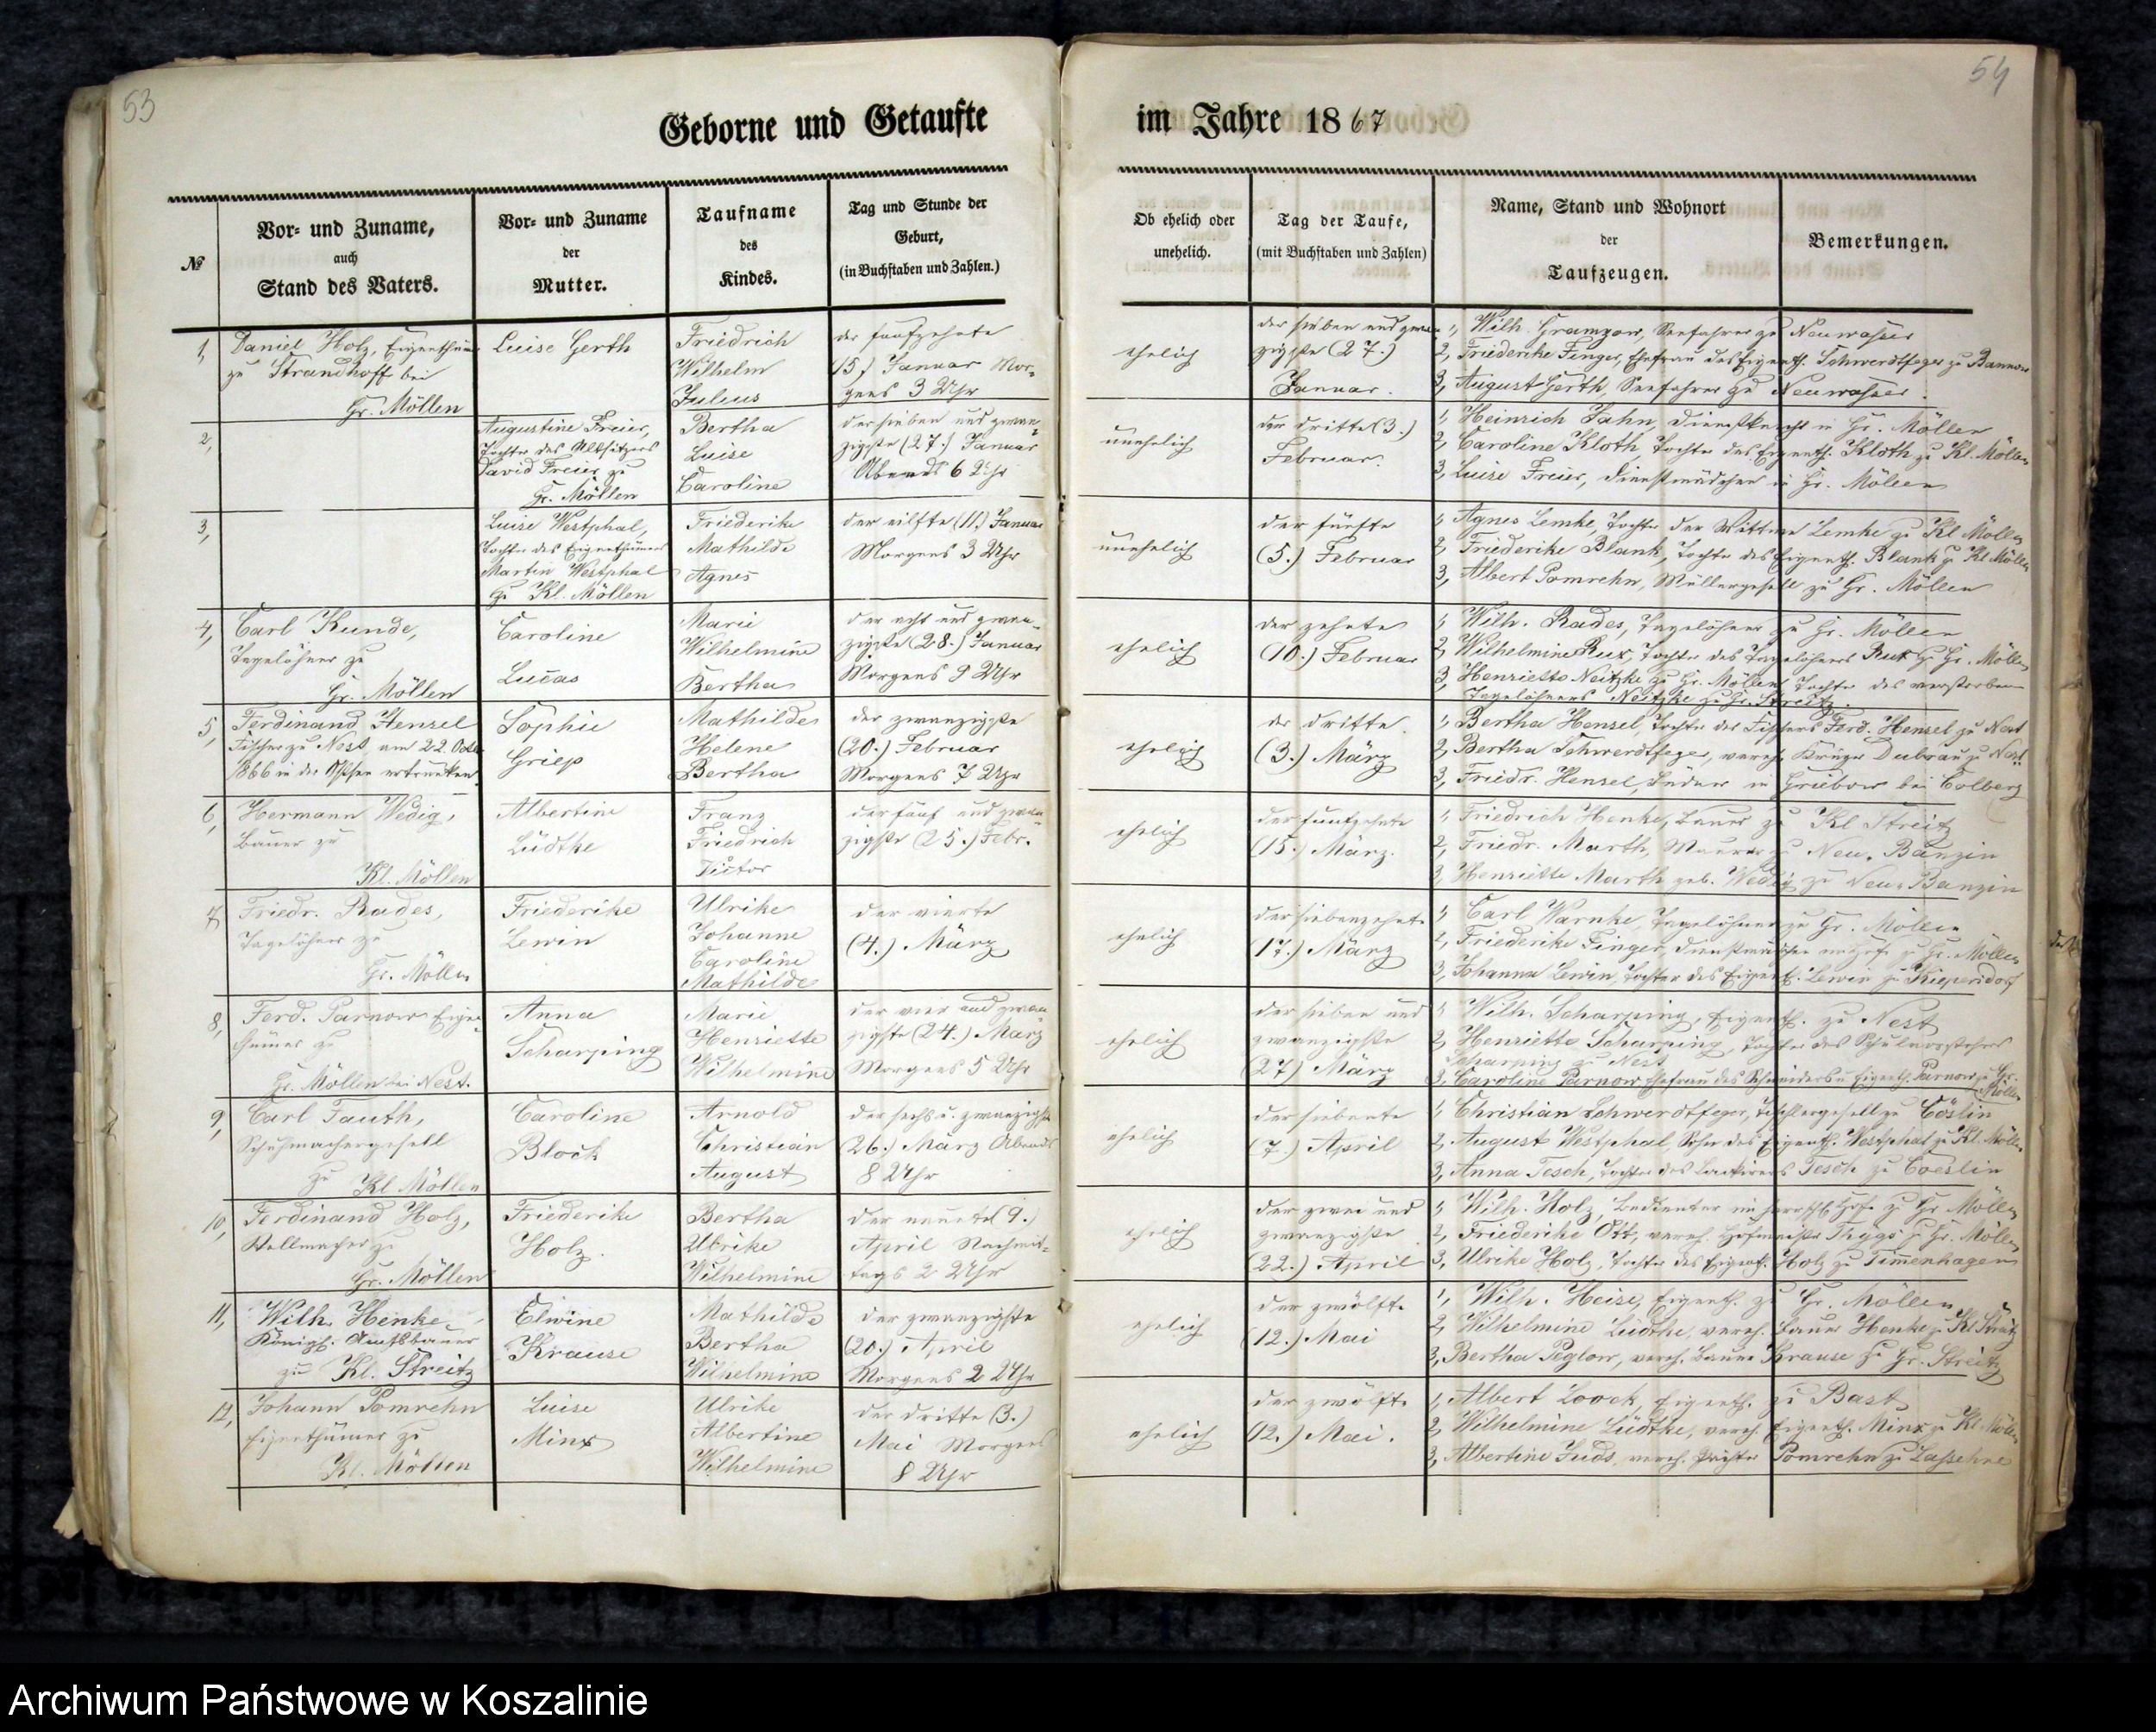 53
54
Geborne und Getaufte
im Jahre 1867
№
Vor- und Zuname,
auch
Stand des Vaters.
Vor- und Zuname
der
Mutter.
Taufname
des
Kindes.
Tag und Stunde der
Geburt,
(in Buchstaben und Zahlen.)
Ob ehelich oder
unehelich.
Tag der Taufe,
(mit Buchstaben und Zahlen)
Name, Stand und Wohnort
der
Taufzeugen.
Bemerkungen.
1,
Daniel Holz, Eigenthümer
zu Strandhoff bei
Gr. Möllen
Luise Gerth
Friedrich
Wilhelm
Julius
der funfzehnte
(15) Januar Mor-
gens 3 Uhr
ehelich
der sieben und zwan-
zigste (27.)
Januar.
1, Wilh. Gramzow, Seefahrer zu Neuwasser
2, Friederike Finger, Ehefrau des Eigenth. Schwerdtfeger zu
3, August Gerth, Seefahrer zu Neuwasser.
2,
Augustine Freier,
Tochter des Altsitzers
David Freier zu
Gr. Möllen
Bertha
Luise
Caroline
der sieben und zwan-
zigste (27.) Januar
Abends 6 Uhr
unehelich
der dritte (3.)
Februar.
1, Heinrich Jahn, Dienstknecht in Gr. Möllen
2, Caroline Kloth, Tochter des Eigenth. Kloth zu Kl. Möllen
3, Luise Freier, Dienstmädchen in Gr. Möllen
3,
Luise Westphal,
Tochter des Eigenthümers
Martin Westphal
zu Kl. Möllen
Friederike
Mathilde
Agnes
der eilfte (11.) Januar
Morgens 3 Uhr
unehelich
der fünfte
(5.) Februar
1, Agnes Lemke, Tochter der Wittwe Lemke zu Kl Möllen
2, Friederike Blank, Tochter des Eigenth. Blank zu Kl. Möllen
3, Albert Pomrehn, Müllergesell zu Gr. Möllen
4,
Carl Kunde,
Tagelöhner zu
Gr. Möllen
Caroline
Lucas
Marie
Wilhelmine
Bertha
der acht und zwan-
zigste (28.) Januar
Morgens 9 Uhr
ehelich
der zehnte
(10.) Februar
1, Wilh. Rades, Tagelöhner zu Gr. Möllen
2, Wilhelmine Rux, Tochter des Tagelöhners Rux zu Gr. Möllen
3, Henriette Neitzke zu Gr. Möllen, Tochter des verstorbenen
Tagelöhners Neitzke zu Gr. Streitz.
5,
Ferdinand Hensel
Fischer zu Nest, am 22. Octbr
1866 in der Ostsee ertrunken
Sophie
Griep
Mathilde
Helene
Bertha
der zwanzigste
(20.) Februar
Morgens 7 Uhr
ehelich
der dritte
(3.) März
1, Bertha Hensel, Tochter des Fischers Ferd. Hensel zu Nest
2, Bertha Schwerdtfeger, vereh. Krüger Dubrau zu Nest.
3, Friedr. Hensel, in Griebow bei Colberg
6,
Hermann Wedig,
Bauer zu
Kl. Möllen
Albertine
Lüdtke
Franz
Friedrich
Victor
der fünf und zwan-
zigste (25.) Febr.
ehelich
der funfzehnte
(15.) März.
1, Friedrich Henke, Bauer zu Kl Streitz
2, Friedr. Marth, Maurer zu Neu-Banzin
3, Henriette Marth geb. Wedig zu Neu-Banzin
7,
Friedr. Rades,
Tagelöhner zu
Gr. Möllen
Friederike
Lewin
Ulrike
Johanne
Caroline
Mathilde
der vierte
(4.) März
ehelich
der siebenzehnte
(17.) März
1, Carl Warnke, Tagelöhner zu Gr. Möllen
2, Friederike Finger, Dienstmädchen zu Gr. Möllen
3, Johanna Lewin, Tochter des Eigenth. Lewin zu Kiepersdorf
8,
Ferd. Parnow Eigen-
thümer zu
Gr. Möllen bei Nest.
Anna
Scharping
Marie
Henriette
Wilhelmine
der vier und zwan-
zigste (24.) März
Morgens 5 Uhr
ehelich
der sieben und
zwanzigste
(27) März
1, Wilh. Scharping, Eigenth. zu Nest
2, Henriette Scharping, Tochter des Schulvorstehers
Scharping zu Nest
3, Caroline Parnow Ehefrau des Schneiders u Eigenth. Parnow zu Gr.
Möllen
9,
Carl Fauth,
Schuhmachergesell
zu Kl Möllen
Caroline
Block
Arnold
Christian
August
der sechs u. zwanzigste
(26.) März Abends
8 Uhr
ehelich
der siebente
(7.) April
1, Christian Schwerdtfeger, Tischlergesell zu Cöslin
2, August Westphal, Sohn des Eigenth. Westphal zu Kl. Möllen
3, Anna Tesch, Tochter des Tesch zu Coeslin
10,
Ferdinand Holz,
Stellmacher zu
Gr. Möllen
Friederike
Holz.
Bertha
Ulrike
Wilhelmine
der neunte (9.)
April Nachmit-
tags 2 Uhr
ehelich
der zwei und
zwanzigste
(22.) April
1, Wilh. Holz, Bedienter im herrschftl. Hofe zu Gr Möllen
2, Friederike Ott, vereh. Hofmeister zu Gr. Möllen
3, Ulrike Holz, Tochter des Eigenth. Holz zu Timmenhagen
11,
Wilh. Henke,
Königl. Amtsbauer
zu Kl. Streitz
Elwine
Krause
Mathilde
Bertha
Wilhelmine
der zwanzigste
(20.) April
Morgens 2 Uhr
ehelich
der zwölfte
(12.) Mai
1, Wilh. Heise, Eigenth. zu Gr. Möllen
2, Wilhelmine Lüdtke, vereh. Bauer Henke zu Kl Streitz
3, Bertha Peglow, vereh. Bauer Krause zu Gr. Streitz
12,
Johann Pomrehn
Eigenthümer zu
Kl. Möllen
Luise
Minx
Ulrike
Albertine
Wilhelmine
der dritte (3.)
Mai Morgens
8 Uhr
ehelich
der zwölfte
(12.) Mai.
1, Albert Loock, Eigenth. zu Bast
2, Wilhelmine Lüdtke, vereh. Eigenth. Minx zu Kl. Möllen
3, Albertine Juds, vereh. Pächter Pomrehn zu Lassehne
Archiwum Państwowe w Koszalinie